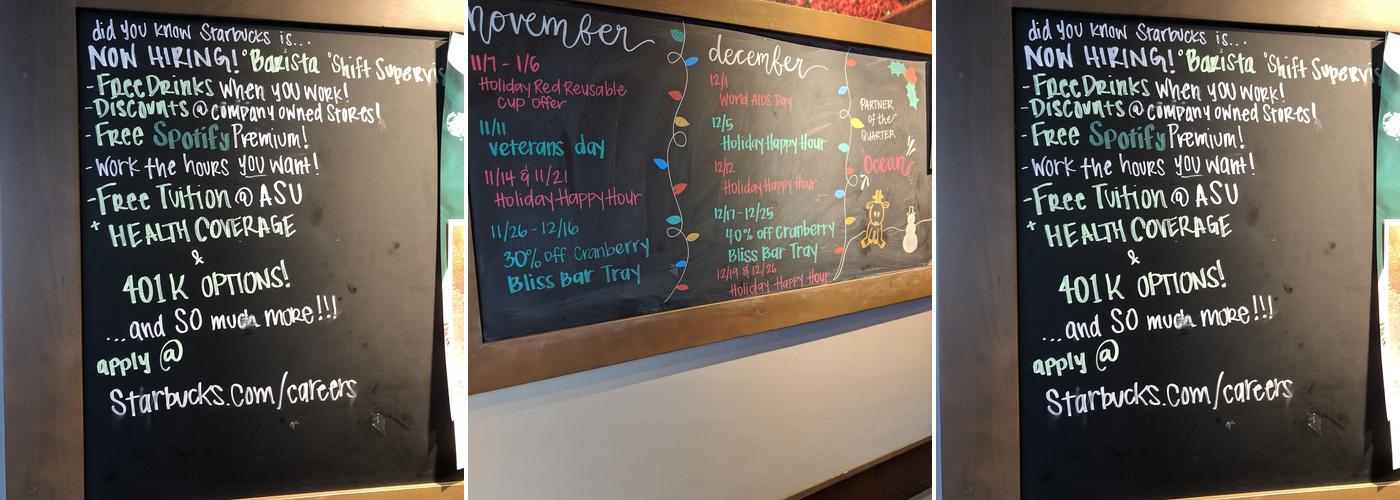 did you know Starbucks is...
NOW HIRING! °Barista °Shift Supervis
- Free Drinks when you work!
- Discounts @ company owned stores!
- Free Spotify Premium!
- Work the hours you want!
- Free Tuition @ ASU
+ HEALTH COVERAGE
&
401K OPTIONS!
...and SO much more!!!
apply @
Starbucks.com/careers
november
11/7 - 1/6
Holiday Red Reusable
Cup Offer
11/11
veterans day
11/14 & 11/21
Holiday Happy Hour
11/26 - 12/16
30% off Cranberry
Bliss Bar Tray
december
12/1
World AIDS Day
12/5
Holiday Happy Hour
12/12
Holiday Happy Hour
12/17 - 12/25
40% off Cranberry
Bliss Bar Tray
12/19 & 12/26
Holiday Happy Hour
PARTNER
of the
QUARTER
Ocean
did you know Starbucks is...
NOW HIRING! °Barista °Shift Supervis
- Free Drinks when you work!
- Discounts @ company owned stores!
- Free Spotify Premium!
- Work the hours you want!
- Free Tuition @ ASU
+ HEALTH COVERAGE
&
401K OPTIONS!
...and SO much more!!!
apply @
Starbucks.com/careers